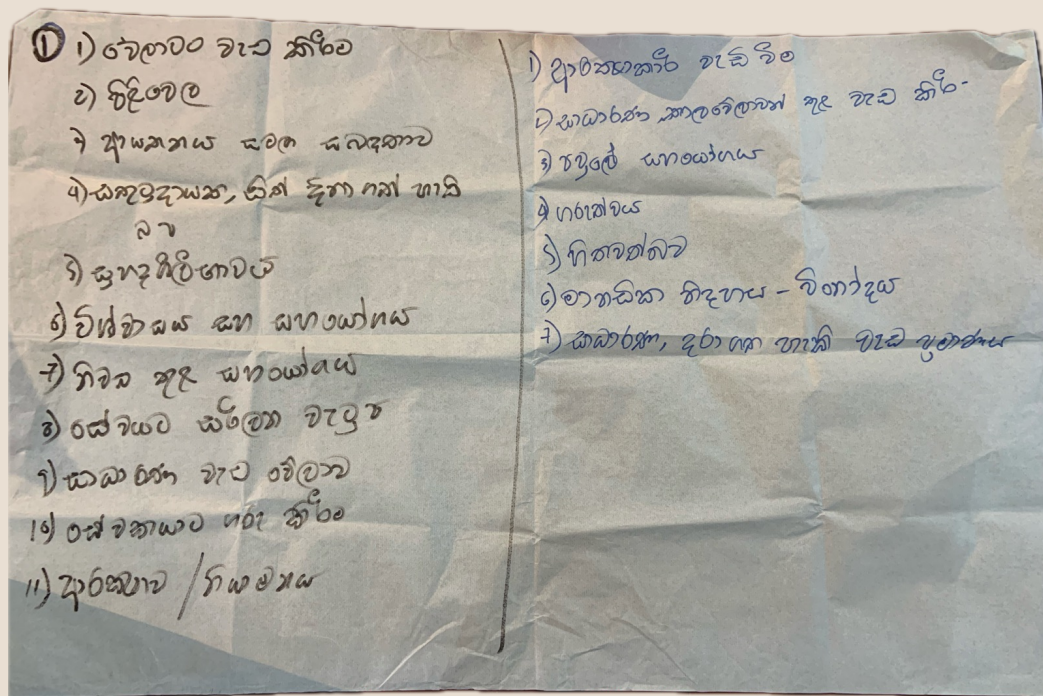 ① 1) වේලාවට වැඩ කිරීම
2) පිළිවෙල
3) ආයතනය සමග සබඳතාව
4) ගනුදෙනු, සිත් දිනා ගත් හැකි
බව
5) සුහදශීලීභාවය
6) විශ්වාසය සහ සහයෝගය
7) නිවස තුළ සහයෝගය
8) සේවයට සරිලන වැටුප
9) සාධාරණ වැඩ වේලාව
10) සේවකයාට ගරු කිරීම
11) ආරක්ෂාව / නියාමනය
1) ආරක්ෂාකාරී වැඩ බිම
2) සාධාරණ කාලවේලාවන් තුළ වැඩ කිරී-
3) පවුලේ සහයෝගය
4) ගරුත්වය
5) හිතවත්බව
6) මානසික නිදහස - විනෝදය
7) සාධාරණ, දරාගත හැකි වැඩ ප්‍රමාණය